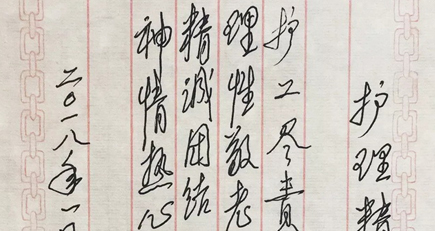 护理精
护工尽责
理性敬老
精诚团结
神情热心
二〇一八年一月